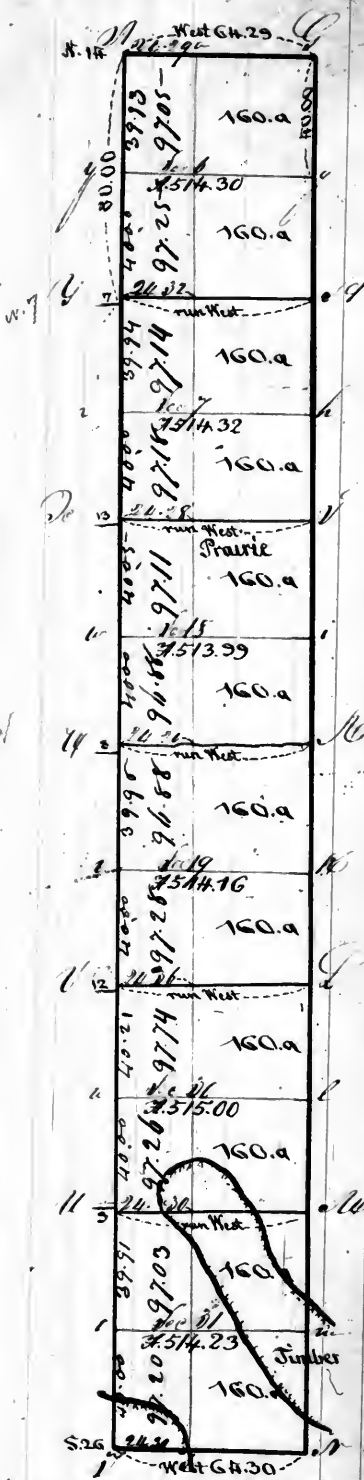 West 64.29
N.14 24.29
39.93 97.05 160.a 40.00
80.00
Sec 6
A.514.30
40.00 97.25 160.a
7 24.32
run West
39.94 97.14 160.a
Sec 7
A.514.32
40.00 97.18 160.a
13 24.28
run West
Prairie
40.05 97.11 160.a
Sec 18
A.513.99
40.00 96.88 160.a
8 24.26
run West
39.95 96.88 160.a
Sec 19
A.514.16
40.00 97.28 160.a
12 24.36
run West
40.21 97.74 160.a
Sec 30
A.515.00
40.00 97.26 160.a
3 24.30
run West
39.91 97.03 160.
Sec 31
A.514.23
Timber
97.20 160.a
S.26 24.30
West 64.30